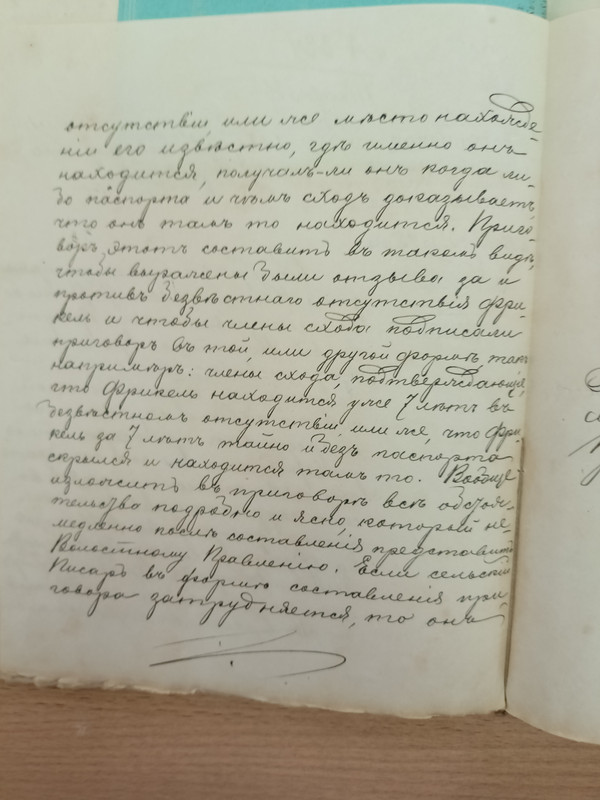 отсутствіи, или же мѣсто нахожде-
ніи его извѣстно, гдѣ именно онъ
находится, получалъ-ли онъ когда ли-
бо паспорта и чѣмъ сходъ доказываетъ,
что онъ тамъ то находится. Приго-
воръ этотъ составить въ такомъ видѣ,
чтобы выражены были отзывы за и
противъ безвѣстнаго отсутствія Фри-
кель и чтобы члены схода подписали
приговоръ въ той, или другой формѣ такъ
напримѣръ: члены схода, подтверждающіе,
что Фрикель находится уже 7 лѣтъ въ
безвѣстномъ отсутствіи, или же, что Фри-
кель за 7 лѣтъ тайно и безъ паспорта
скрылся и находится тамъ то. Вообще
изложить въ приговорѣ всѣ обстоя-
тельства подробно и ясно, который не-
медленно послѣ составленія представить
Волостному Правленію. Если сельскій
Писарь въ формѣ составленія при-
говора затрудняется, то онъ